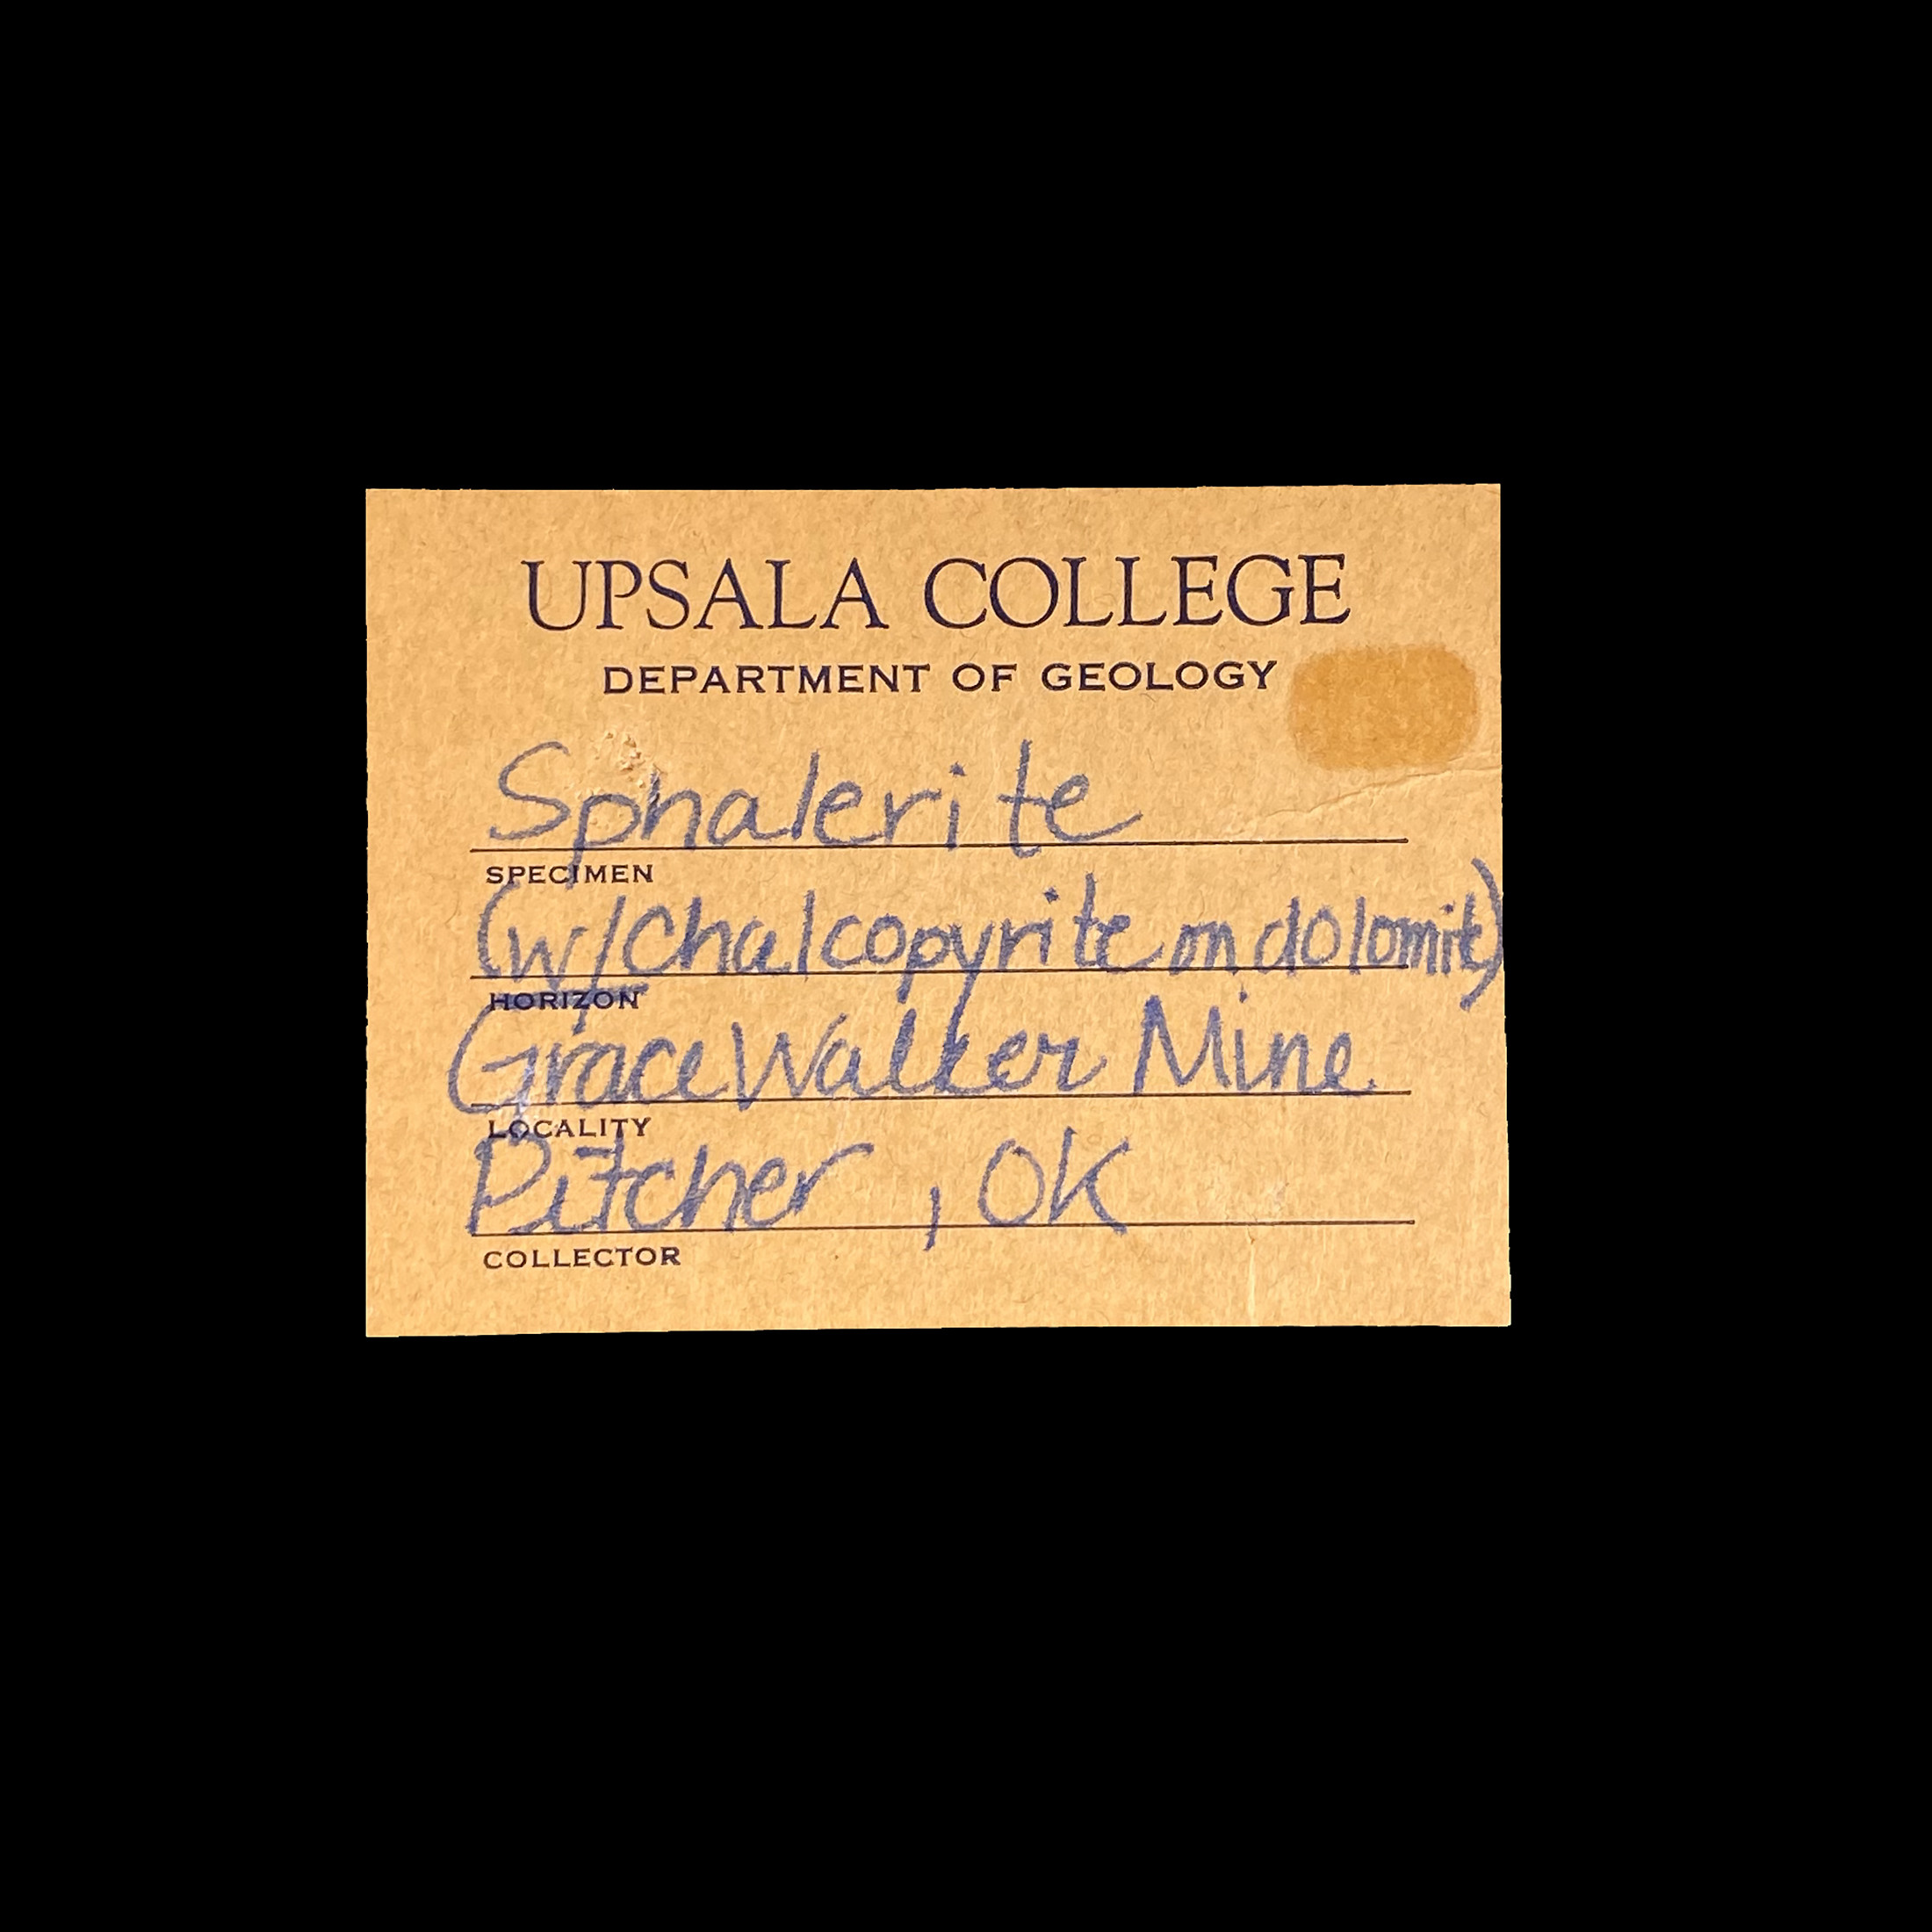 UPSALA COLLEGE
DEPARTMENT OF GEOLOGY
Sphalerite
SPECIMEN
(w/chalcopyrite on dolomite)
HORIZON
Grace Walker Mine
LOCALITY
Pitcher, OK
COLLECTOR